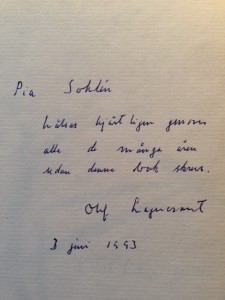 Pia Sohlén
hälsas hjärtligen genom
alla de många åren
sedan denna bok skrevs.
Olof Lagercrantz
3 juni 1993